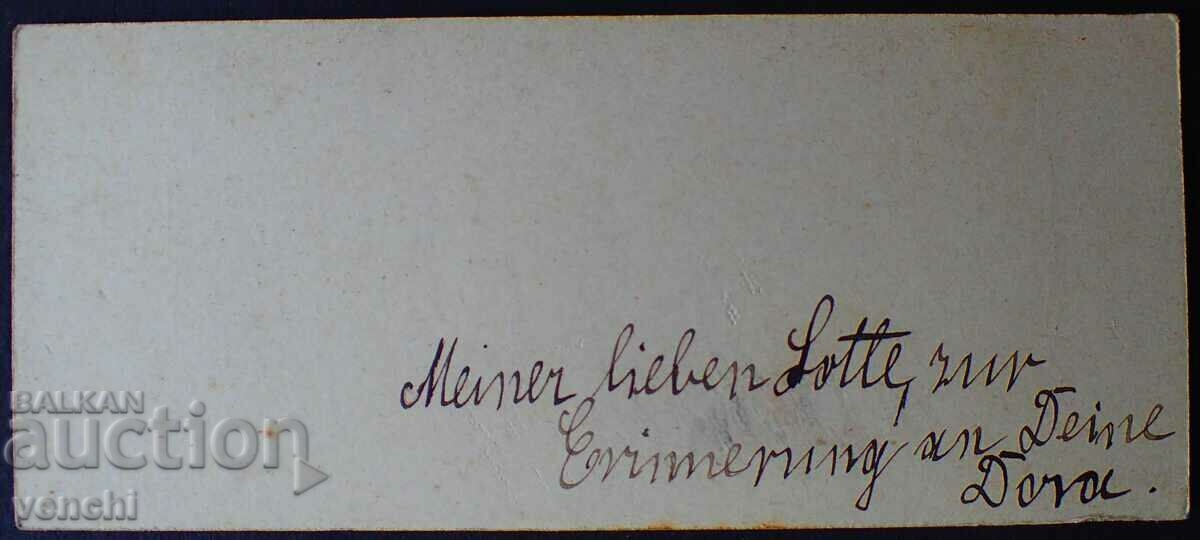 Meiner lieben Lotte, zur
Erinnerung an Deine
Dora.
BALKAN
auction
venchi